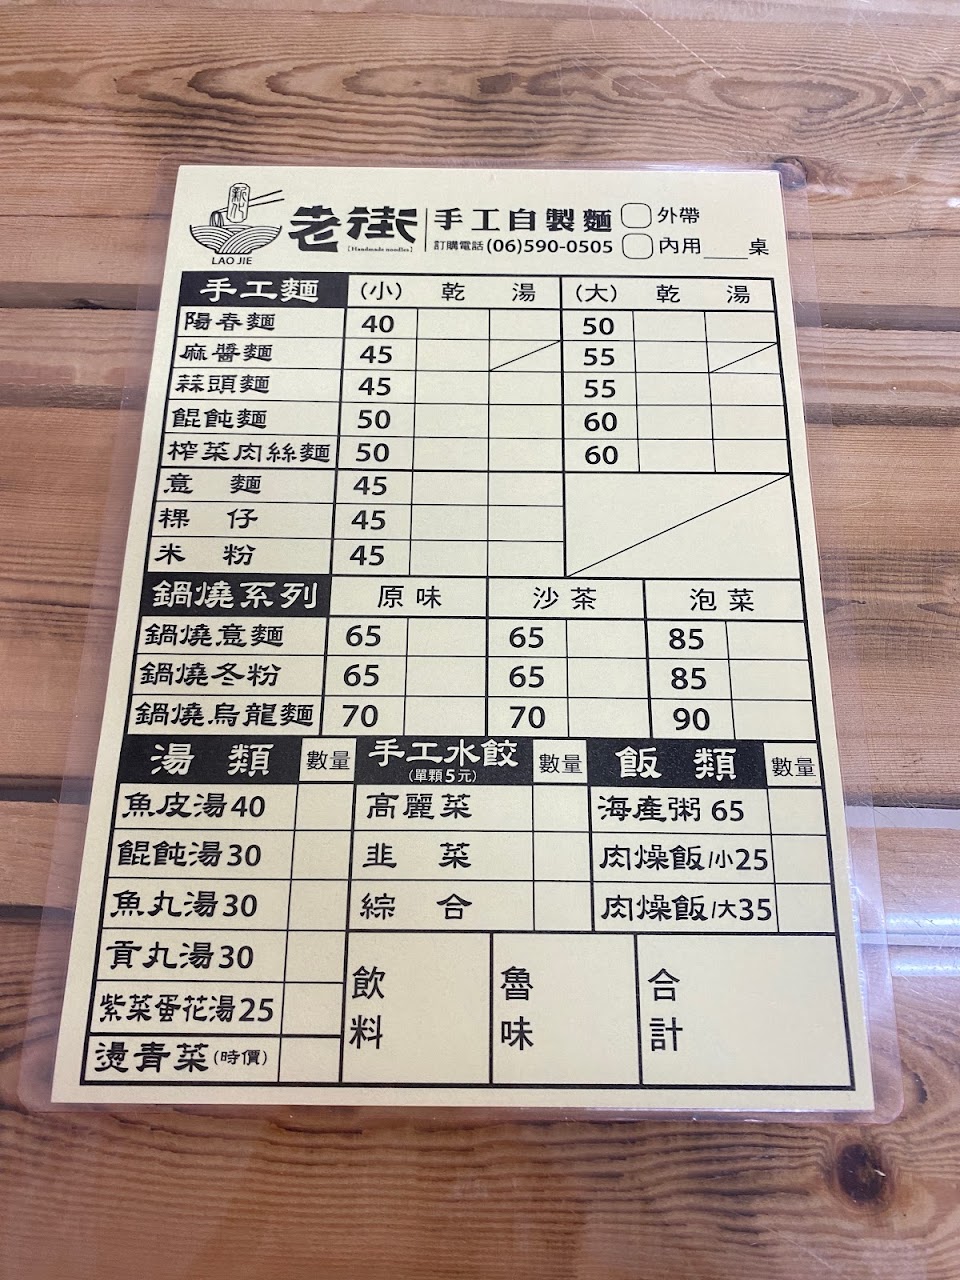 新化
LAO JIE
老街
[Handmade noodles]
手工自製麵
訂購電話(06)590-0505
外帶
內用____桌
手工麵 (小) 乾 湯 (大) 乾 湯
陽春麵 40 50
麻醬麵 45 55
蒜頭麵 45 55
餛飩麵 50 60
榨菜肉絲麵 50 60
意麵 45
粿仔 45
米粉 45
鍋燒系列 原味 沙茶 泡菜
鍋燒意麵 65 65 85
鍋燒冬粉 65 65 85
鍋燒烏龍麵 70 70 90
湯類 數量 手工水餃 (單顆5元) 數量 飯類 數量
魚皮湯40 高麗菜 海產粥 65
餛飩湯30 韭菜 肉燥飯/小25
魚丸湯30 綜合 肉燥飯/大35
貢丸湯30
紫菜蛋花湯25
燙青菜(時價)
飲料 魯味 合計